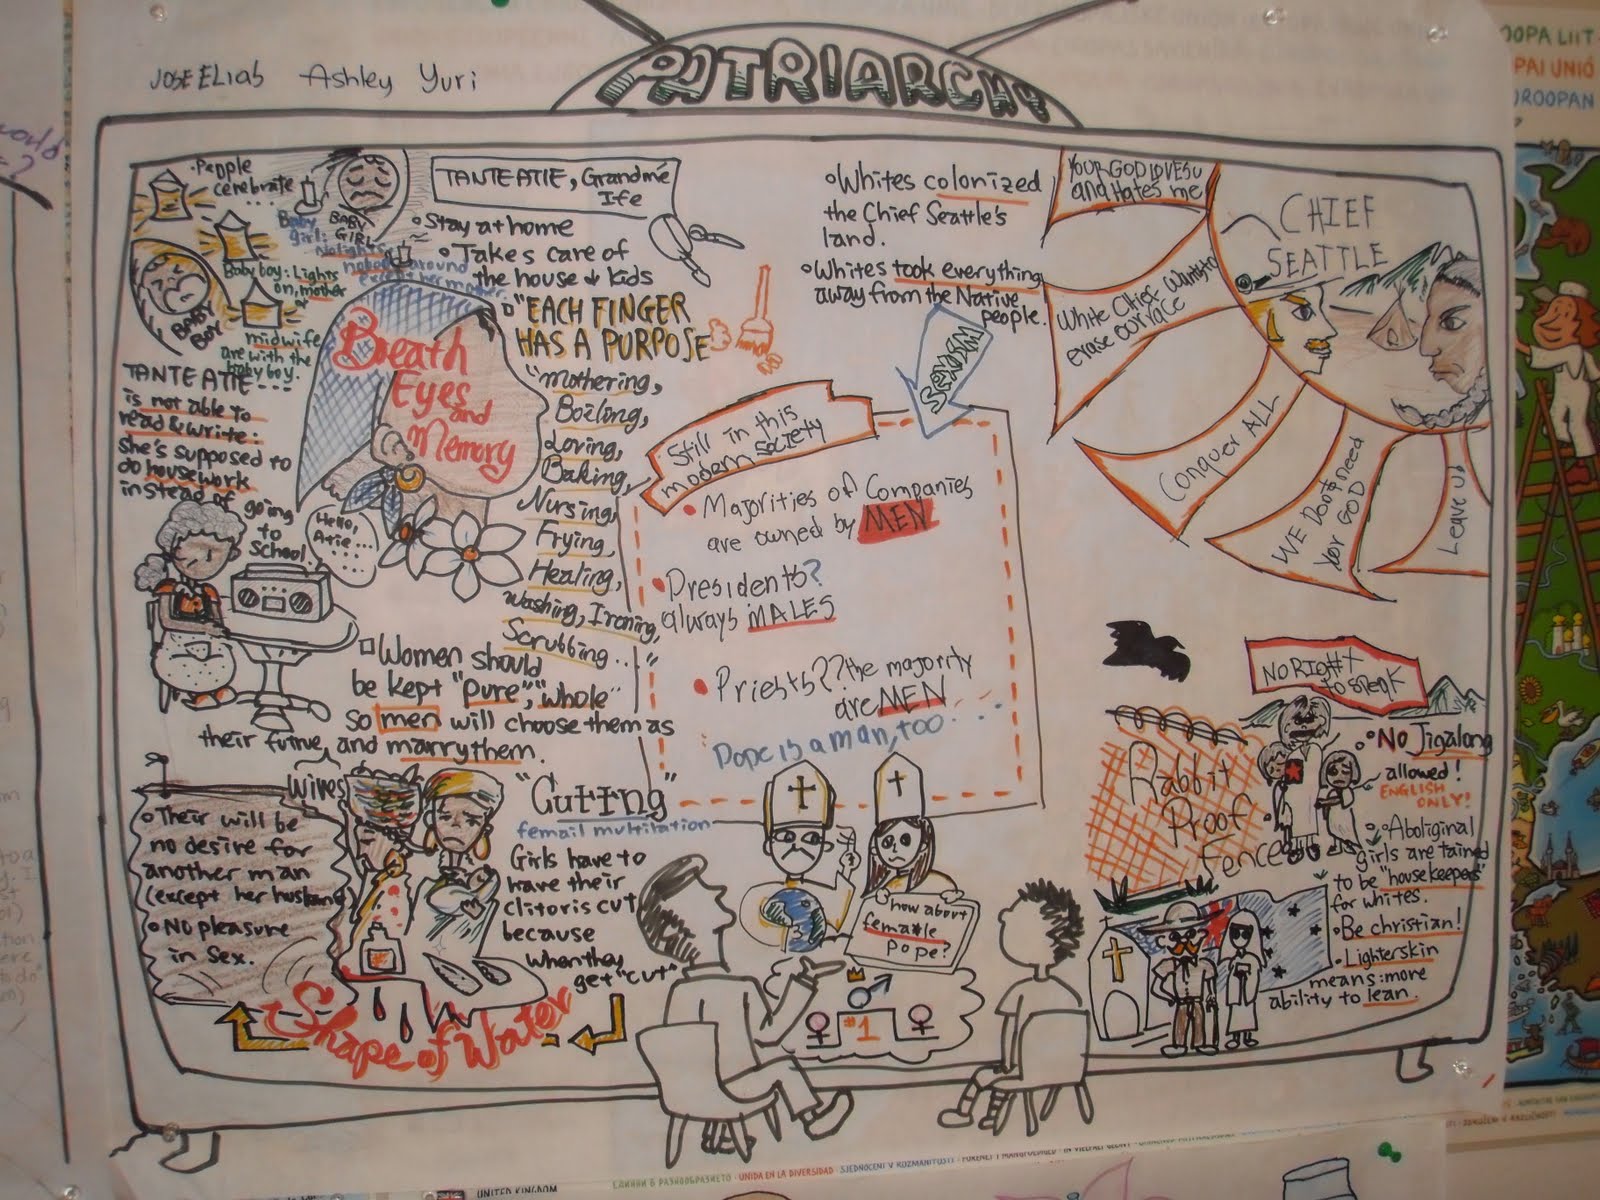 JOSE ELIAS Ashley Yuri
PATRIARCHY
•People
cerebrate
Baby
girl:
No lights
nobody around
except her mother
BABY
GIRL
Baby boy: Lights
on, mother
&
midwife
are with the
baby boy.
BABY
BOY
TANTE ATIE, Grandmé
Ife
•Stay at home
•Takes care of
the house & kids
"EACH FINGER
HAS A PURPOSE
"Mothering,
Boilong,
Loving,
Baking,
Nursing,
Frying,
Healing,
washing, Ironing,
Scrubbing.."
Breath
Eyes
and
Memory
TANTE ATIE---
is not able to
read & write:
she's supposed to
do housework
instead of
going
to
School
Hello,
Atie...
Women should
be kept "pure", "whole"
so men will choose them as
their futrue, and marry them.
wives
•Their will be
no desire for
another man
(except her husband
•No pleasure
in Sex.
"Cutting"
femail multitation
Girls have to
have their
clitoris cut
because
when they
get "cut"
Shape of Water
•Whites colonized
the Chief Seattle's
land.
•Whites took everything
away from the Native
people.
Still in this
modern society
•Majorities of Companies
are owned by MEN
•Presidents?
always MALES
•Priests?? the majority
are MEN
Pope is a man, too....
how about
female
pope?
#1
YOUR GOD LOVES U
and Hates me
White Chief Wants to
erase our race
Conquer ALL
WE Don't need
Your GOD
Leave us
CHIEF
SEATTLE
NO RIGHT
to speak
Rabbit
Proof
Fence
•No Jigalong
allowed!
ENGLISH
ONLY!
•Aboliginal
girls are tained
to be "housekeepers"
for whites.
•Be christian!
•Lighterskin
means: more
ability to lean.
OOPA LIIT
PAI UNIÓ
UROOPAN
UNIDA EN LA DIVERSIDAD
UNITED KINGDOM